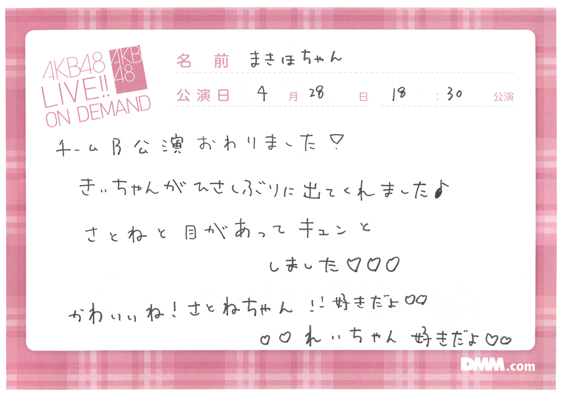 AKB48
LIVE!!
ON DEMAND
AKB
48
名前 まきほちゃん
公演日 4月28日 18:30公演
チームB公演おわりました♡
きぃちゃんがひさしぶりに出てくれました♪
さとねと目があってキュンと
しました♡♡♡
かわいいね!さとねちゃん!!好きだよ♡♡
♡♡れいちゃん 好きだよ♡♡
DMM.com